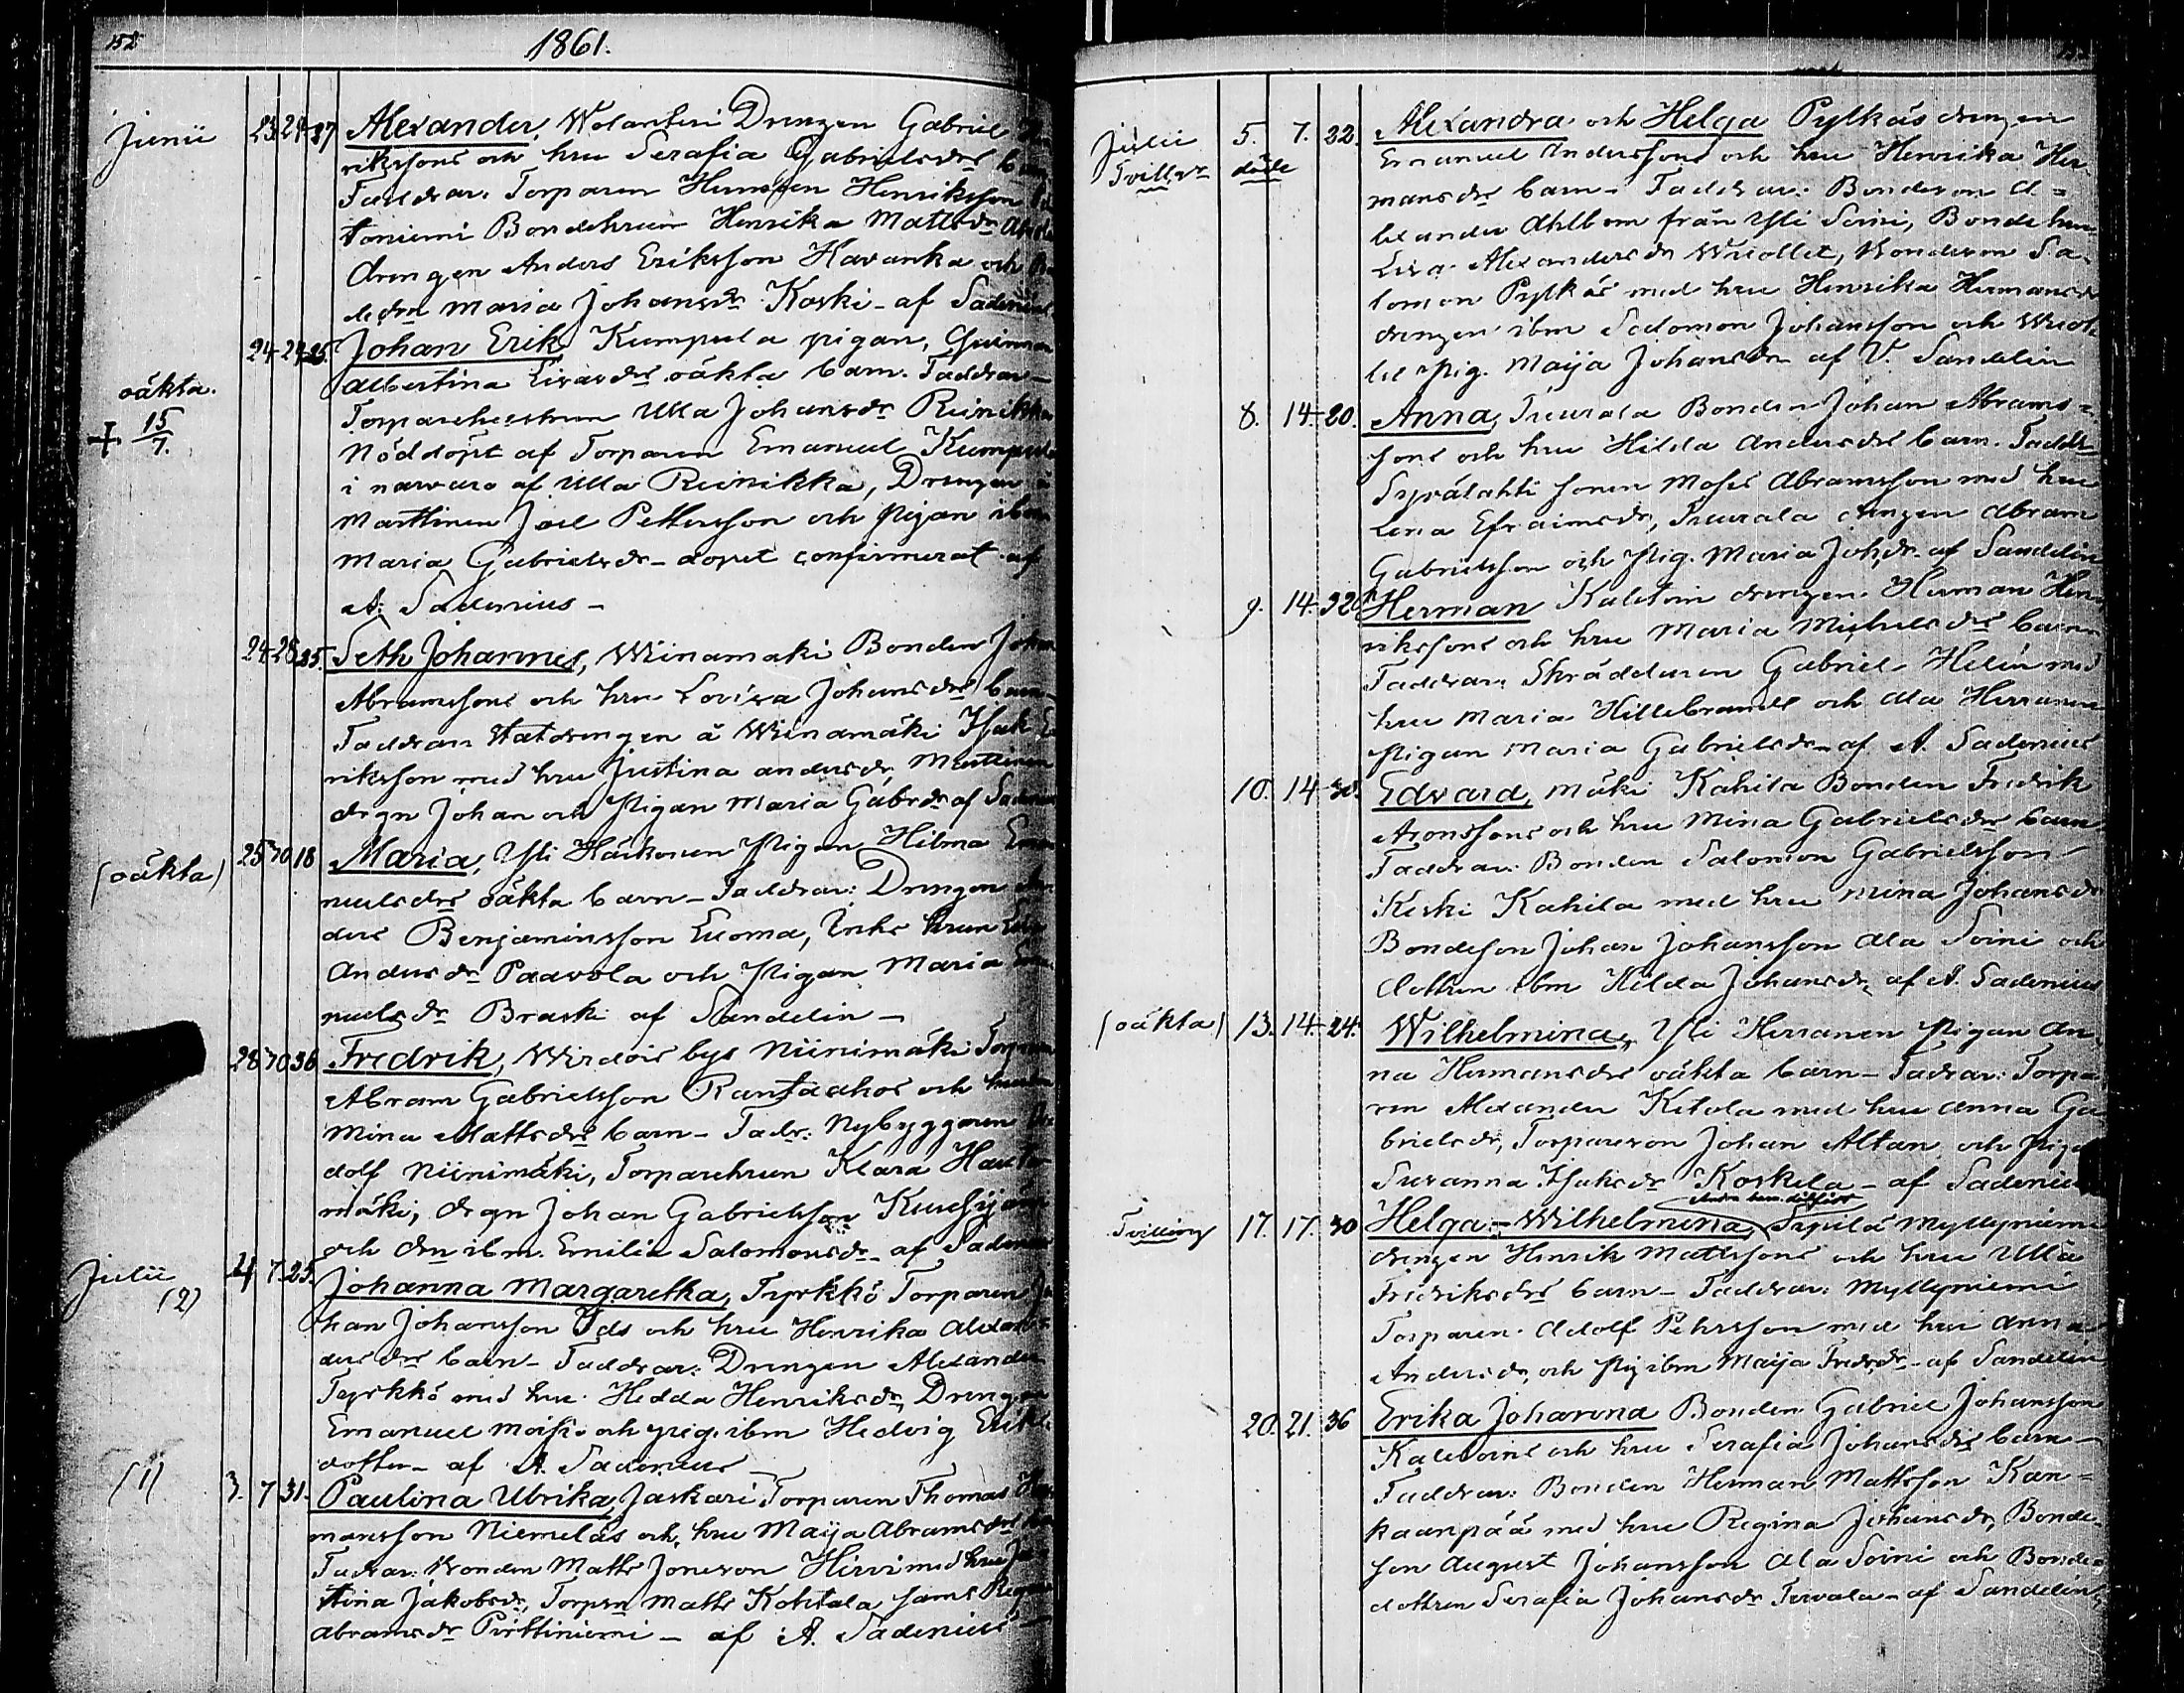 152
1861.
Junii 23 24 37 Alexander, Wolanteri Drengen Gabriel
rikssons och hru Serafia Gabrielsdrs
Faddrar: Torparen Herman Henriksson
toniemi Bondehrun Henrika Mattsdr
drengen Anders Eriksson Havanka och
Maria Johansdr Koski - af Sadenius
oäkta. + 15/7. 24 24 25. Johan Erik, Kumpula pigan, Qvinnan
Albertina Eivardr oäkta barn. Faddrar -
Torparehustrun Ulla Johansdr Reinikka
Nöddöpt af Torparen Emanuel Kumpula
i narvaro af Ulla Reinikka, Drengen å
Marttinen Joel Pettersson och Pigan ibm
Maria Gabrielsdr - dopet confirmerat af
A: Sadenius -
24 28 25. Seth Johannes, Wiinamäki Bonden
Abramssons och hru Lovisa Johansdrs barn -
Faddrar: Statdrengen å Wiinamäki Isak
riksson med hru Justina andersdr, Marttinen
drgn Johan och Pigan Maria Gabrdr af
(oäkta) 25 30 18 Maria, Yli Häkonen Pigan Hilma
nuelsdrs oäkta barn - Faddrar: Drengen
ders Benjaminsson Euoma, Inhs hrun
Andersdr Paavola och Pigan Maria
nuelsdr Braski af Sandelin -
28 30 36 Fredrik, Wirdois bys Niinimäki
Abram Gabrielsson Rantaahos och
Mina Mattsdrs barn - Fadr: Nybyggaren
dolf Niinimäki, Torparehrun Klara
mäki, drgn Johan Gabrielsson
och drn ibm. Emilia Salomonsdr - af
Julii (2) 4 7 25. Johanna Margaretha, Tyrkkö Torparen
han Johansson Ids och hru Henrika
dersdrs barn - Faddrar: Drengen Alexander
Tyrkkö med hru Hedda Henriksdr, Drengen
Emanuel och pig. ibm Hedvig
dotter - af A. Sadenius
(1) 3. 7 31. Paulina Ulrika, Jaskari Torparen Thomas
mansson Niemeläs och hru Maija Abramsdrs
Fadrar: Bonden Matts Jonsson Hirvi med hru
stina Jakobsdr, Torprn Matts Kohtala samt
Abramsdr Pirttiniemi - af A. Sadenius -
Julii Tvillgr 5. 7. 22. döde Alexandra och Helga Pylkäs drengen
Emanuel Anderssons och hru Henrika Her-
mansdrs barn - Faddrar: Bondeson A=
lexander Ahlbom från Yli Soini, Bondehru
Lisa Alexandersdr Wuollet, Bonderson Sa-
lomon Pylkäs med hru Henrika Hermansdr
drengen ibm Salomon Johansson och Wuol-
let Pig. Maija Johansdr af V. Sandelin
8. 14. 20. Anna, Teurala Bonden Johan Abrams=
sons och hru Hilda Andersdrs barn. Faddr
Syvälahti sonen Moses Abramsson med hru
Lena Efraimsdr, Teurala drengen Abram
Gabrielsson och Pig. Maria Johdr. af Sandelin
9. 14. 32 Herman Kaletoin drengen Herman Hen-
rikssons och hru Maria Michelsdrs barn
Faddrar: Skräddaren Gabriel Helin med
hru Maria Hillebrandt och Ala Herranen
Pigan Maria Gabrielsdr af A. Sadenius
10. 14 30. Edvard, Mäki Kahila Bonden Fredrik
Aronssons och hru Mina Gabrielsdrs barn
Faddrar: Bonden Salomon Gabrielsson
Keski Kahila med hru Mina Johansdr
Bondeson Johan Johansson Ala Soini och
dottren ibm Hilda Johansdr, af A. Sadenius
(oäkta) 13. 14. 24. Wilhelmina, Yli Herranen Pigan An-
na Hermansdrs oäkta barn - Fadrar: Torpa-
ren Alexander Ketola med hru Anna Ga
brielsdr, Torpareson Johan Altan, och Piga
Susanna Isaksdr Koskela - af Sadenius
Tvilling 17. 17. 30 Helga - Wilhelmina, Sipilä Myllyniemi
drengen Henrik Mattssons och hru Ulla
Fredriksdrs barn - Faddrar: Myllyniemi
Torparen Adolf Pehrsson med hru Anna
Andersdr, och Pig ibm Maija Fredrdr - af Sandelin
20. 21. 36 Erika Johanna Bonden Gabriel Johansson
Kaletoins och hru Serafia Johansdrs barn -
Faddrar: Bonden Herman Mattsson Kan=
kaanpää med hru Regina Johansdr, Bonde-
son August Johansson Ala Soini och Bonde=
dottren Serafia Johansdr Tervala - af Sandelin